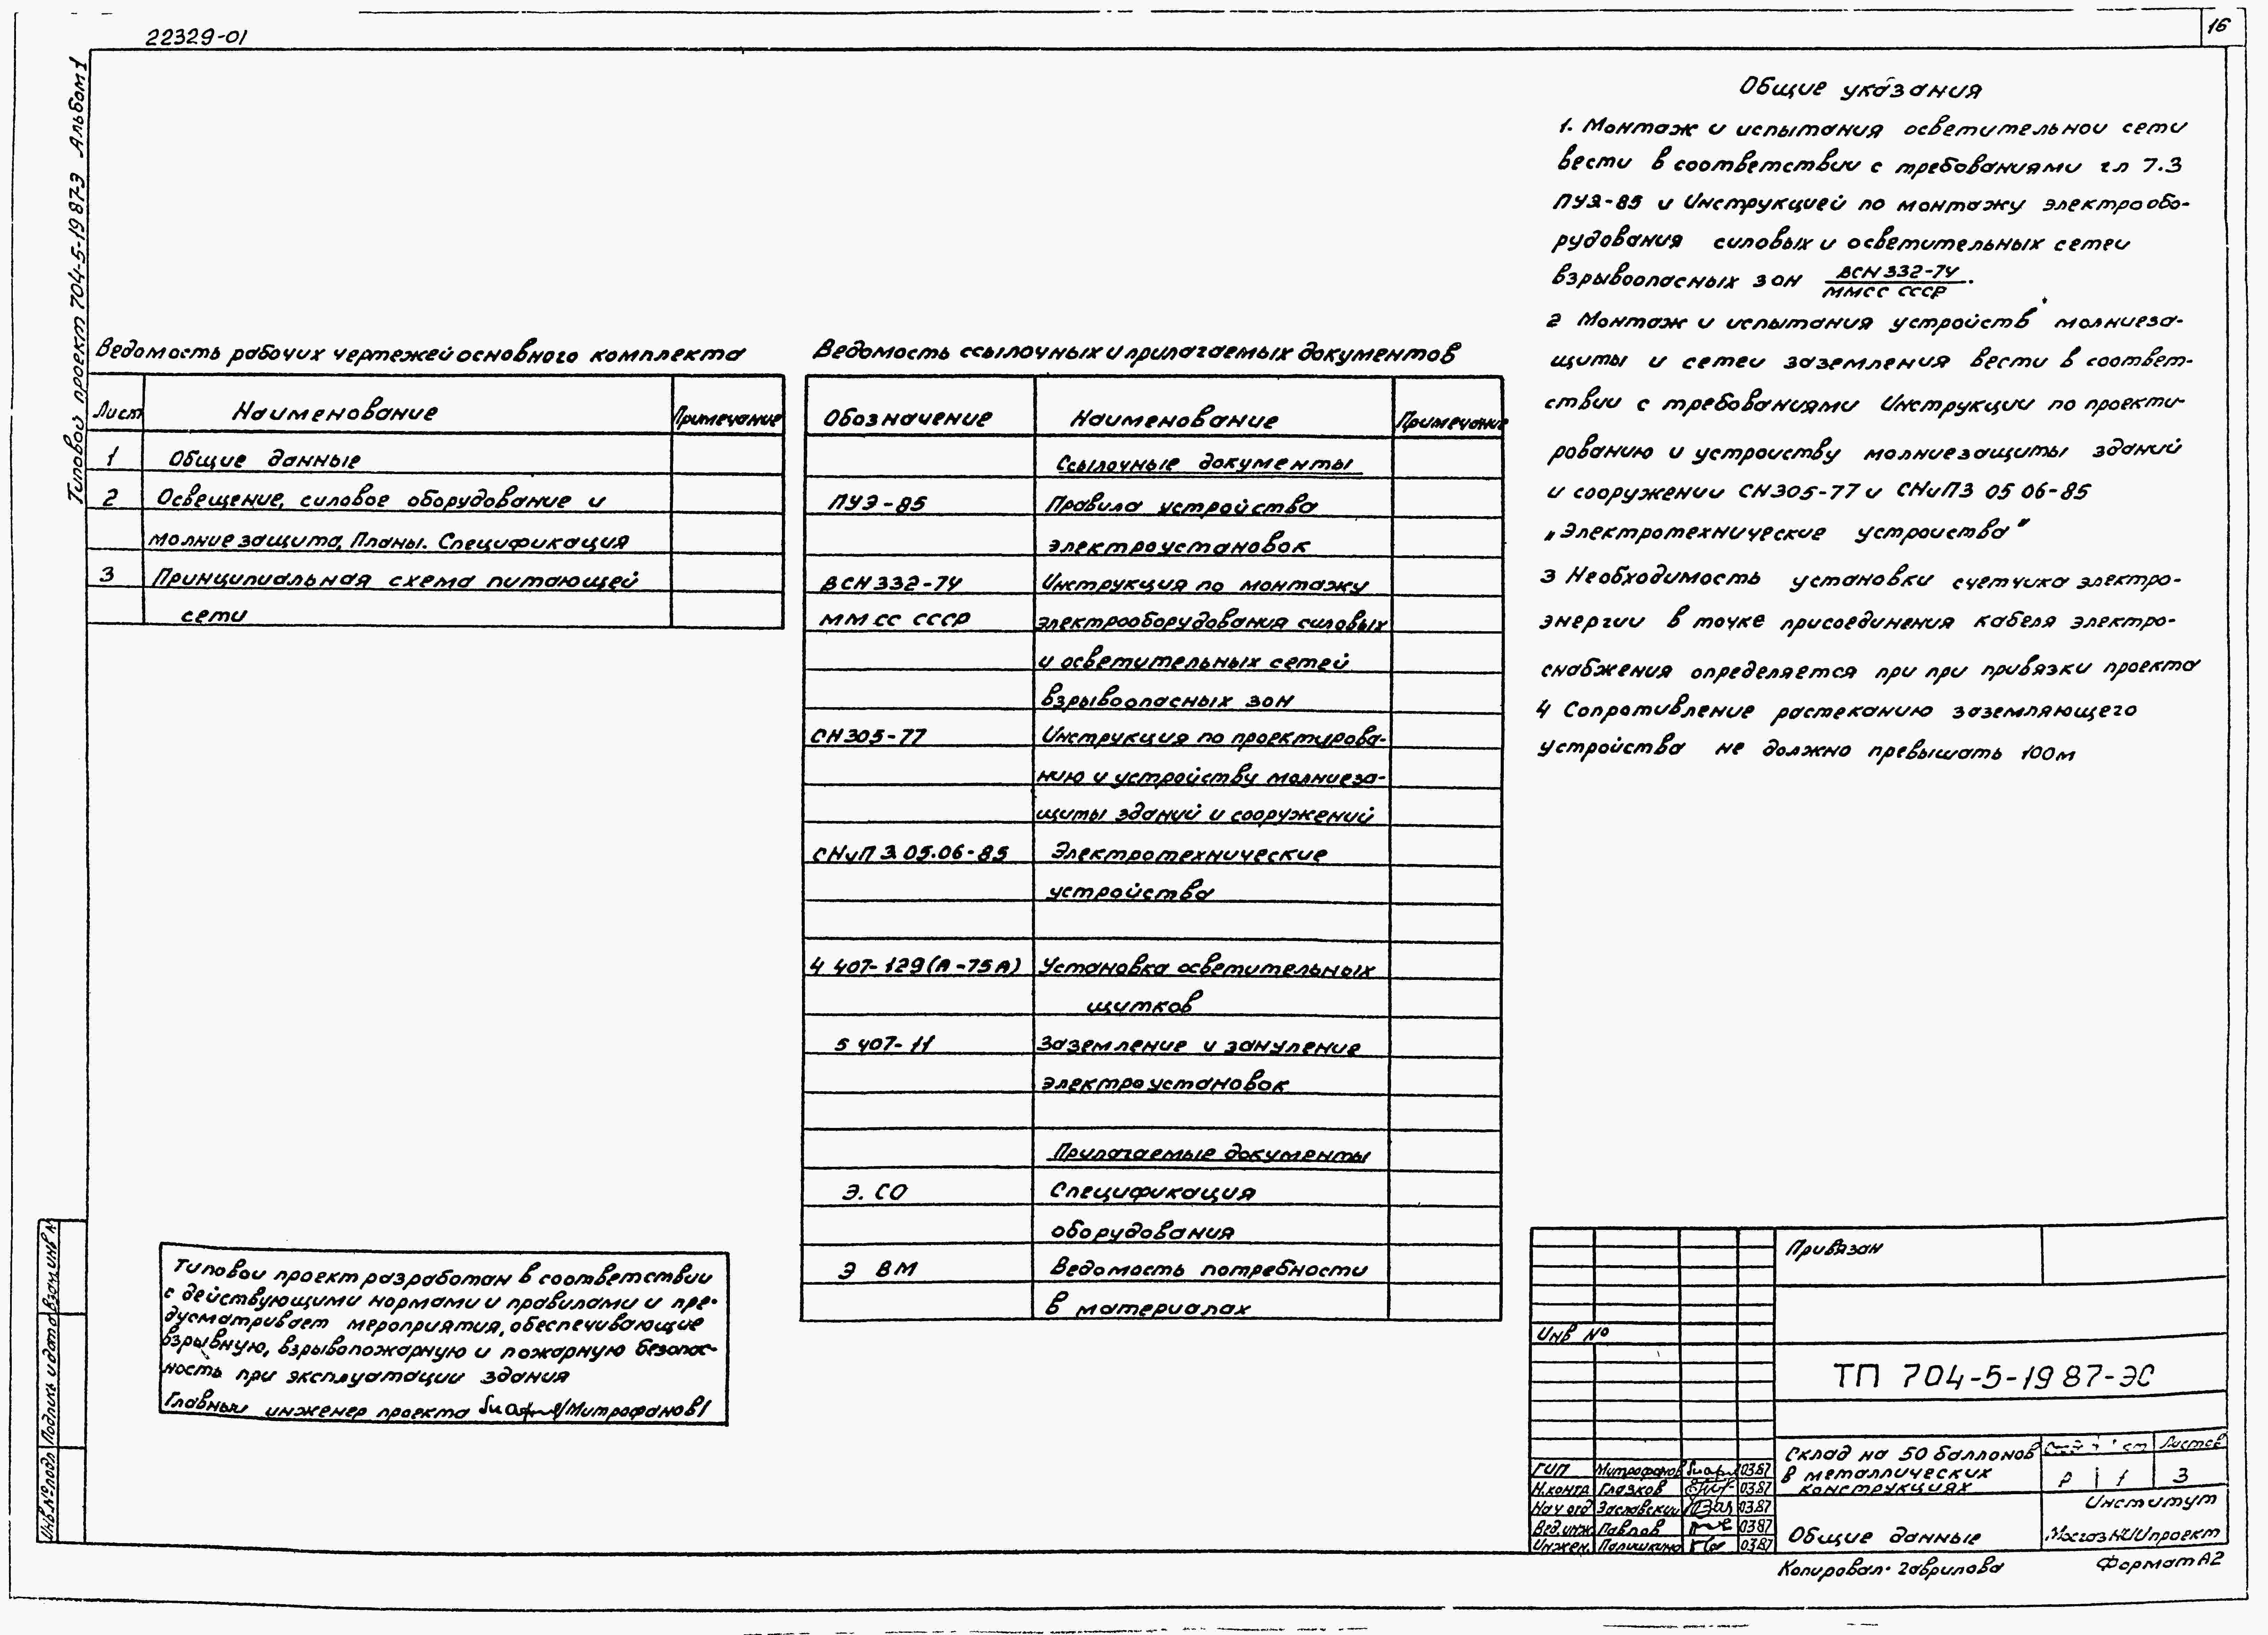 22329-01
16
Типовой проект 704-5-19 87-Э Альбом 1
Ведомость рабочих чертежей основного комплекта
Лист Наименование Примечание
1 Общие данные
2 Освещение, силовое оборудование и
молниезащита, Планы. Спецификация
3 Принципиальная схема питающей
сети
Типовои проект разработан в соответствии
с действующими нормами и правилами и пре-
дусматривает мероприятия, обеспечивающие
взрывную, взрывопожарную и пожарную безопас-
ность при эксплуатации здания
Главныи инженер проекта /Митрофанов/
Ведомость ссылочных и прилагаемых документов
Обозначение Наименование Примечание
Ссылочные документы
ПУЭ-85 Правила устройства
электроустановок
ВСН 332-74 Инструкция по монтажу
ММСС СССР электрооборудования силовых
и осветительных сетей
взрывоопасных зон
СН 305-77 Инструкция по проектирова-
нию и устройству молниеза-
щиты зданий и сооружений
СНиП 3 05.06-85 Электротехнические
устройства
4 407-129(А-75А) Установка осветительных
щитков
5 407-11 Заземление и зануление
электроустановок
Прилагаемые документы
Э. СО Спецификация
оборудования
Э ВМ Ведомость потребности
в материалах
Общие указания
1. Монтаж и испытания осветительнои сети
вести в соответствии с требованиями гл 7.3
ПУЭ-85 и Инструкцией по монтажу электрообо-
рудования силовых и осветительных сетеи
взрывоопасных зон ВСН 332-74
ММСС СССР.
2 Монтаж и испытания устройств молниеза-
щиты и сетеи заземления вести в соответ-
ствии с требованиями Инструкции по проекти-
рованию и устроиству молниезащиты зданий
и сооружении СН 305-77 и СНиП3 05 06-85
„Электротехнические устроиства"
3 Необходимость установки счетчика электро-
энергии в точке присоединения кабеля электро-
снабжения определяется при при привязки проекта
4 Сопротивление растеканию заземляющего
устройства не должно превышать 100м
Инв.№подл Подпись и дата Взам.инв N
Привязан
Инв №
ТП 704-5-19 87-ЭС
Склад на 50 баллонов
в металлических
конструкциях
Листов
Р 1 3
Общие данные
Институт
МосгазНИИпроект
ГИП Митрофанов 03.87
Н.контр Глазков 03.87
Нач отд Заславский 03.87
Вед.инж Павлов 03.87
Инжен. 03.87
Копировал. Гаврилова
Формат А2